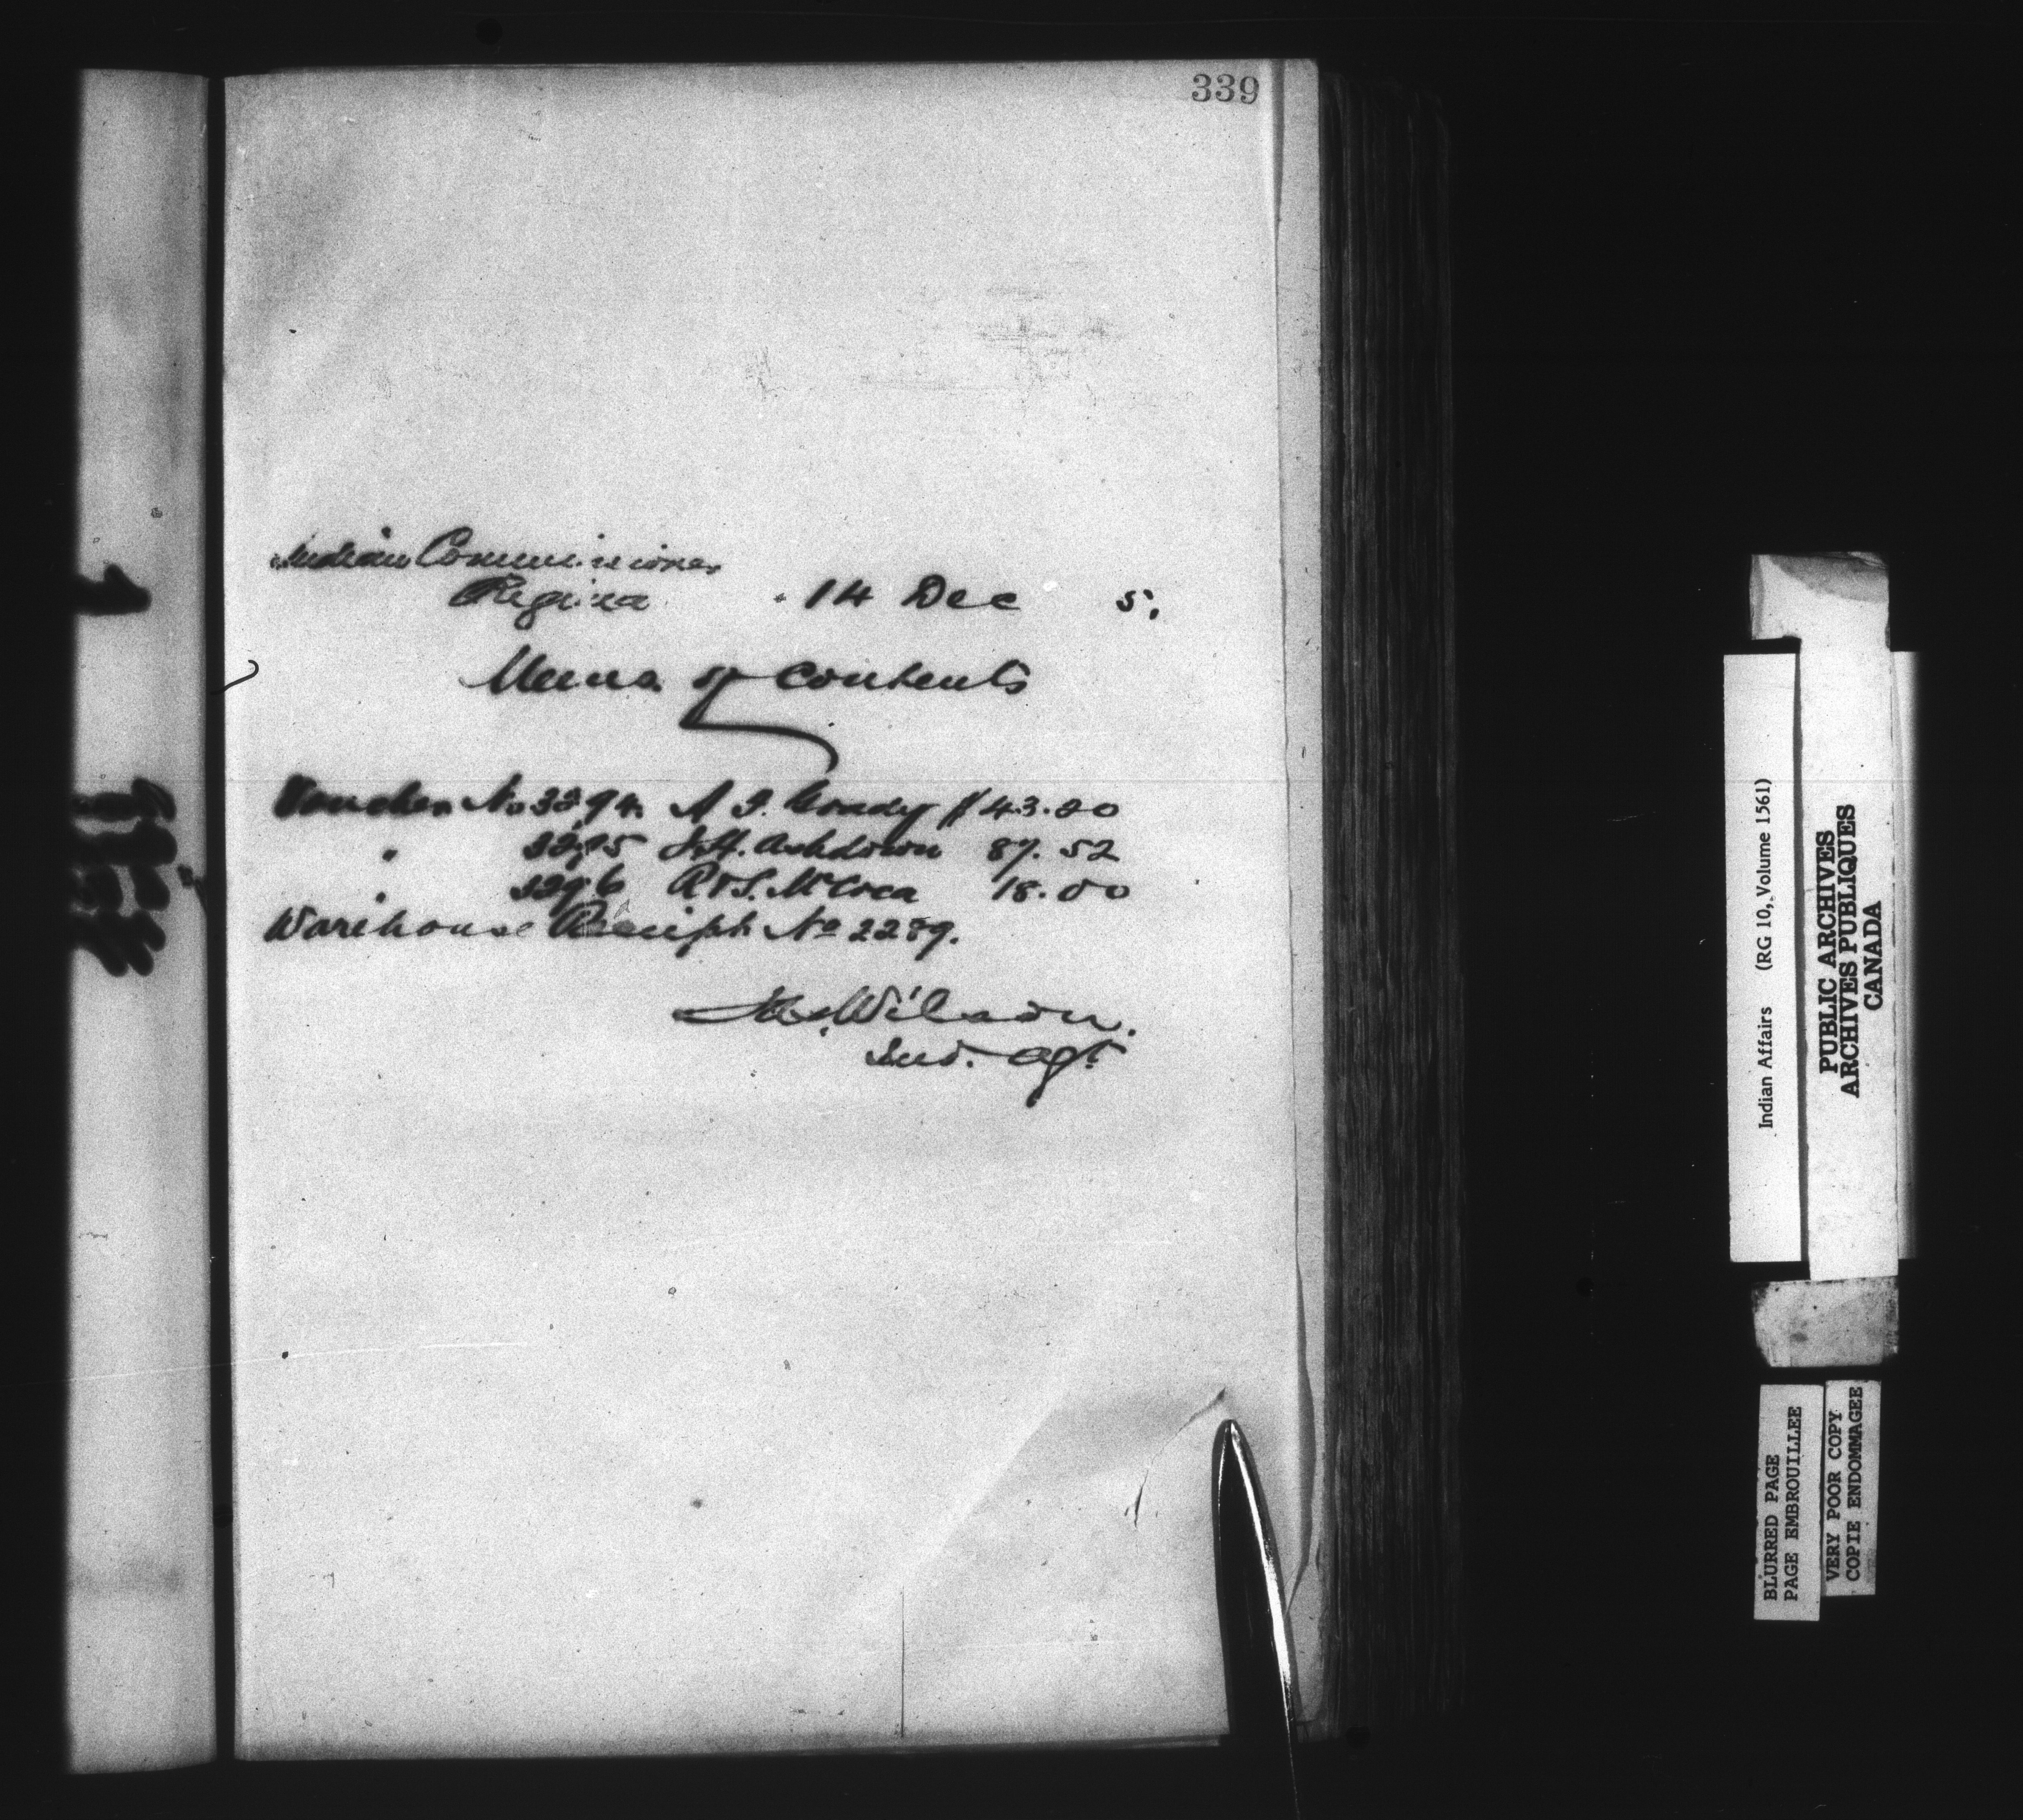 339
Indian Commissioner
Regina 14 Dec 5.
Memo of contents
Voucher No 3294 A J. Grady $43.20
" 3295 J.H. Ashdown 87.52
3296 R & S. McCrea 18.00
Warehouse Receipt No 2289.
Jas. Wilson.
Ind. Agt.
Indian Affairs (RG 10, Volume 1561)
PUBLIC ARCHIVES
ARCHIVES PUBLIQUES
CANADA
BLURRED PAGE
PAGE EMBROUILLEE
VERY POOR COPY
COPIE ENDOMMAGEE